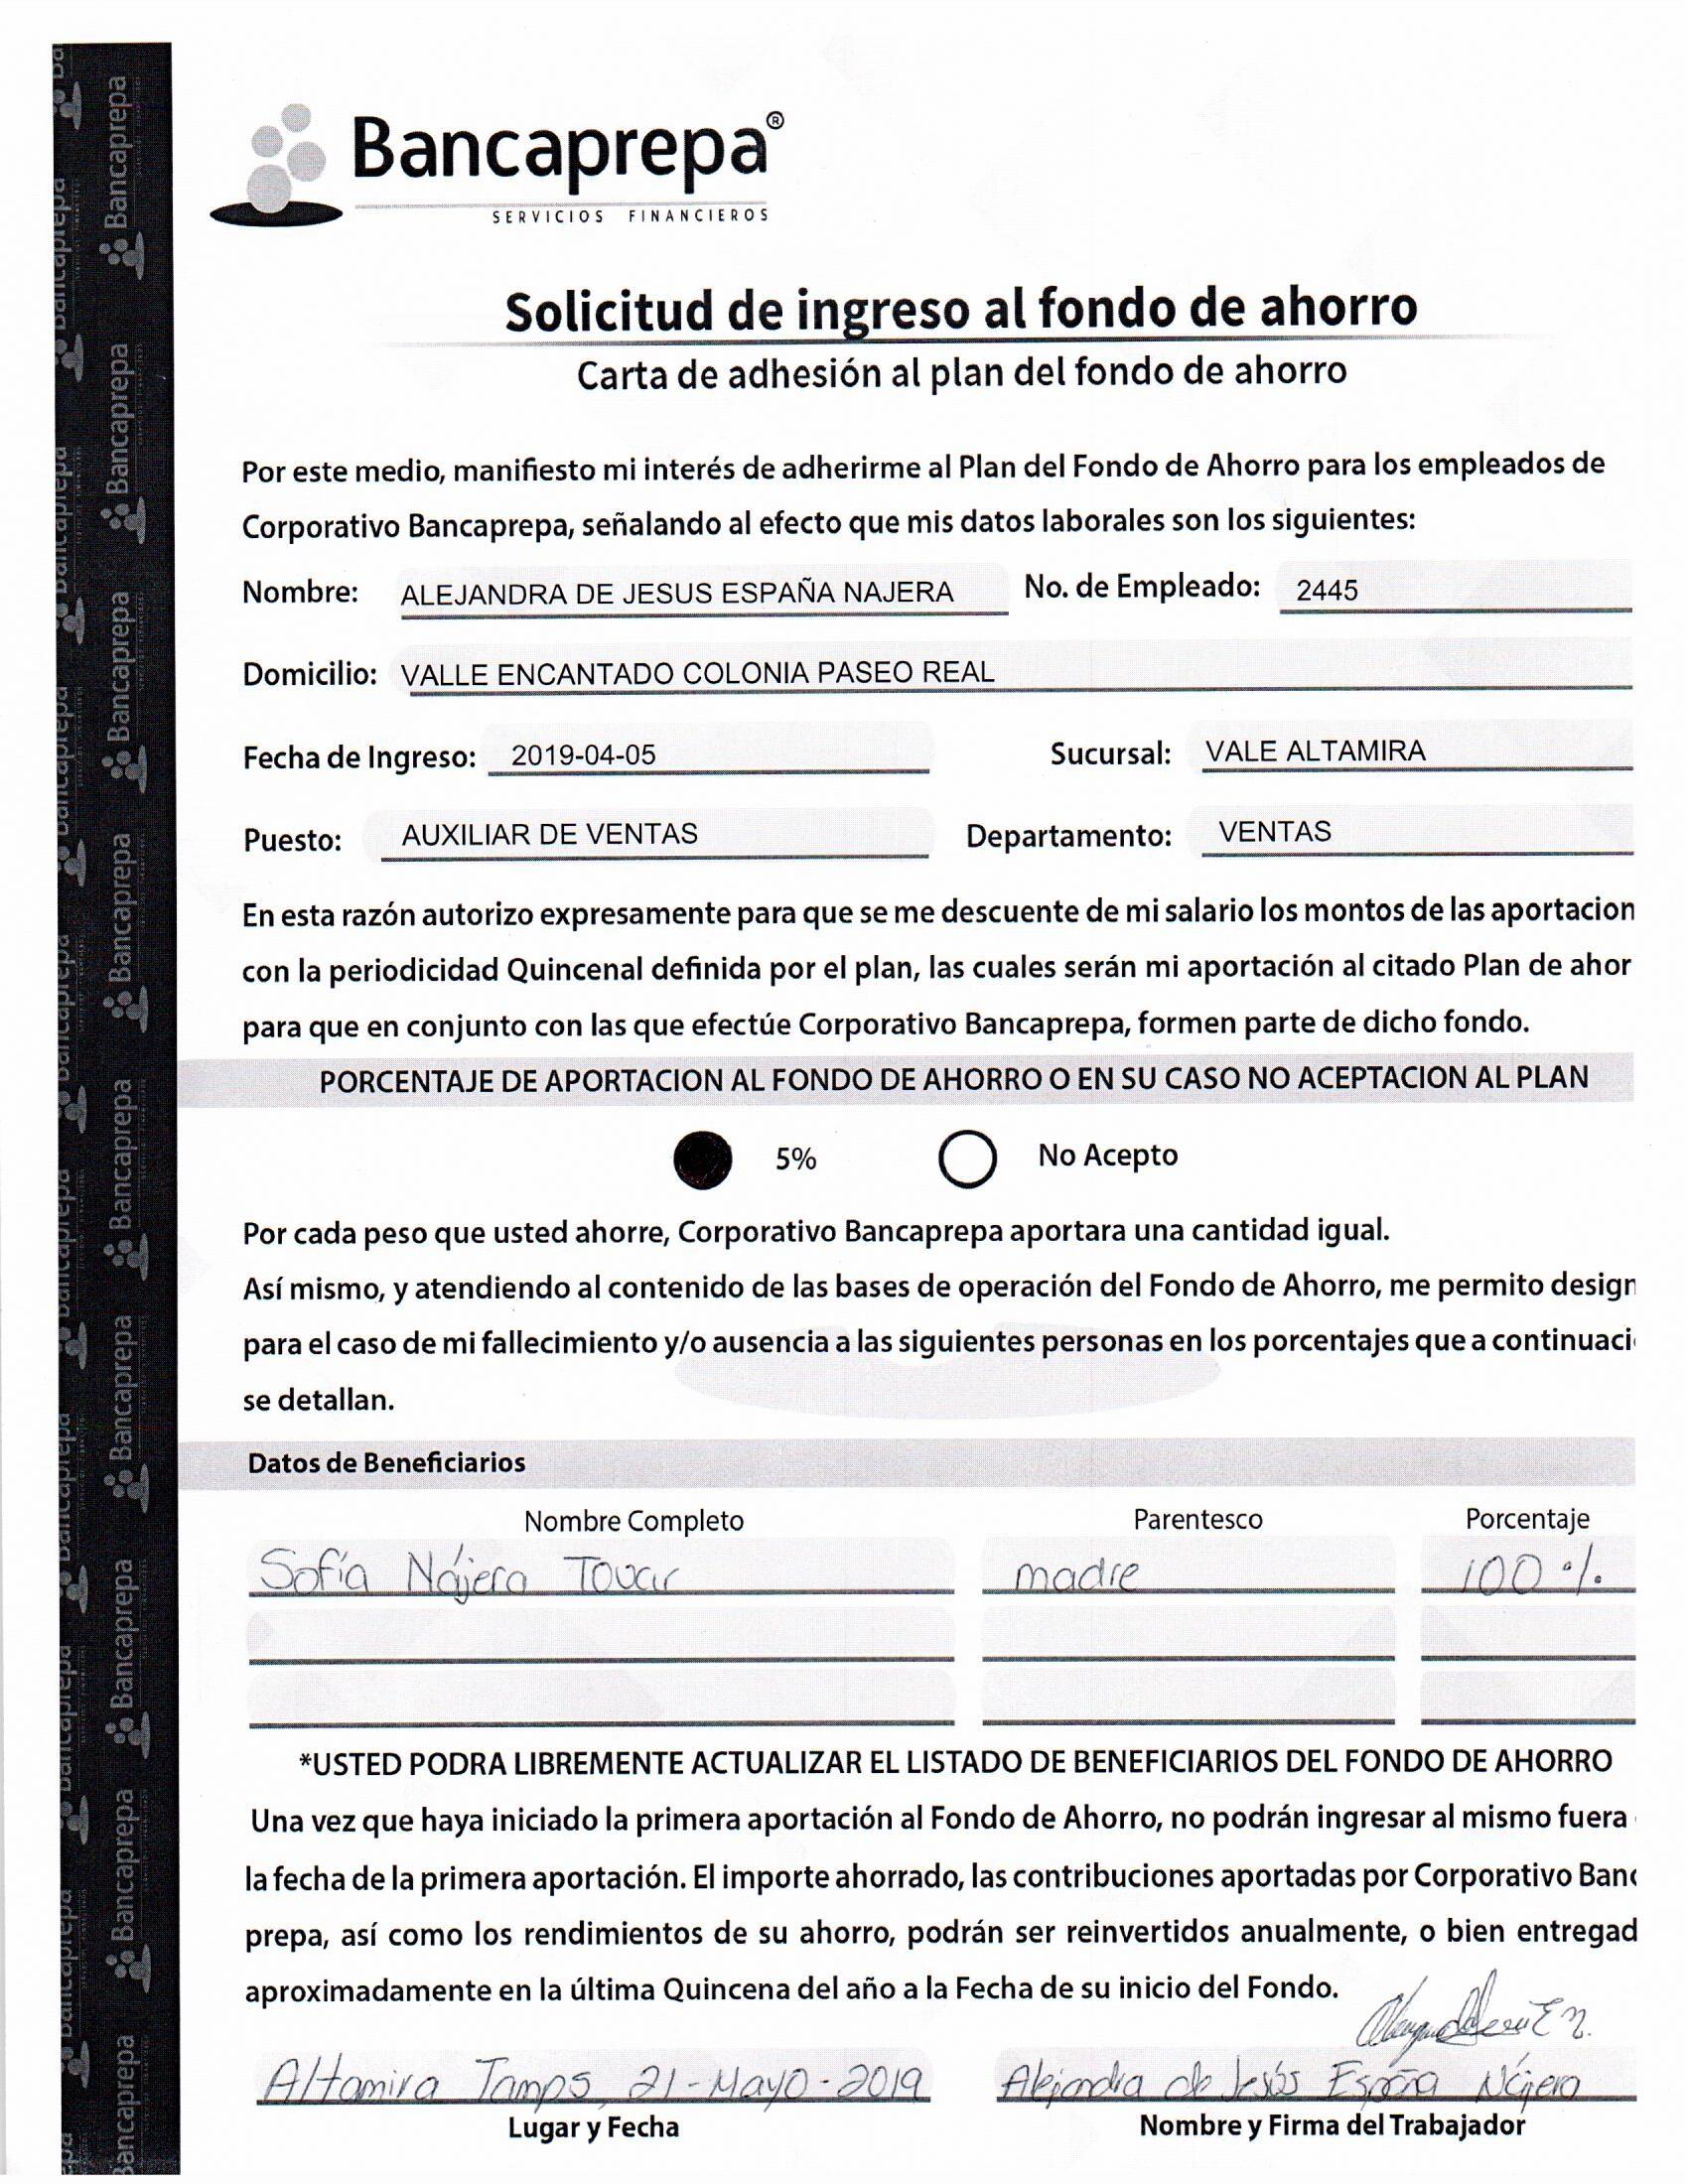 Bancaprepa®
SERVICIOS FINANCIEROS
Solicitud de ingreso al fondo de ahorro
Carta de adhesión al plan del fondo de ahorro
Por este medio, manifiesto mi interés de adherirme al Plan del Fondo de Ahorro para los empleados de
Corporativo Bancaprepa, señalando al efecto que mis datos laborales son los siguientes:
Nombre: ALEJANDRA DE JESUS ESPAÑA NAJERA No. de Empleado: 2445
Domicilio: VALLE ENCANTADO COLONIA PASEO REAL
Fecha de Ingreso: 2019-04-05 Sucursal: VALE ALTAMIRA
Puesto: AUXILIAR DE VENTAS Departamento: VENTAS
En esta razón autorizo expresamente para que se me descuente de mi salario los montos de las aportacion
con la periodicidad Quincenal definida por el plan, las cuales serán mi aportación al citado Plan de ahor
para que en conjunto con las que efectúe Corporativo Bancaprepa, formen parte de dicho fondo.
PORCENTAJE DE APORTACION AL FONDO DE AHORRO O EN SU CASO NO ACEPTACION AL PLAN
5% No Acepto
Por cada peso que usted ahorre, Corporativo Bancaprepa aportara una cantidad igual.
Así mismo, y atendiendo al contenido de las bases de operación del Fondo de Ahorro, me permito design
para el caso de mi fallecimiento y/o ausencia a las siguientes personas en los porcentajes que a continuaci
se detallan.
Datos de Beneficiarios
Nombre Completo Parentesco Porcentaje
Sofía Nájera Tovar madre 100 %
*USTED PODRA LIBREMENTE ACTUALIZAR EL LISTADO DE BENEFICIARIOS DEL FONDO DE AHORRO
Una vez que haya iniciado la primera aportación al Fondo de Ahorro, no podrán ingresar al mismo fuera
la fecha de la primera aportación. El importe ahorrado, las contribuciones aportadas por Corporativo Banc
prepa, así como los rendimientos de su ahorro, podrán ser reinvertidos anualmente, o bien entregad
aproximadamente en la última Quincena del año a la Fecha de su inicio del Fondo.
Altamira Tamps, 21-Mayo-2019 Alejandra de Jesús España Nájera
Lugar y Fecha Nombre y Firma del Trabajador